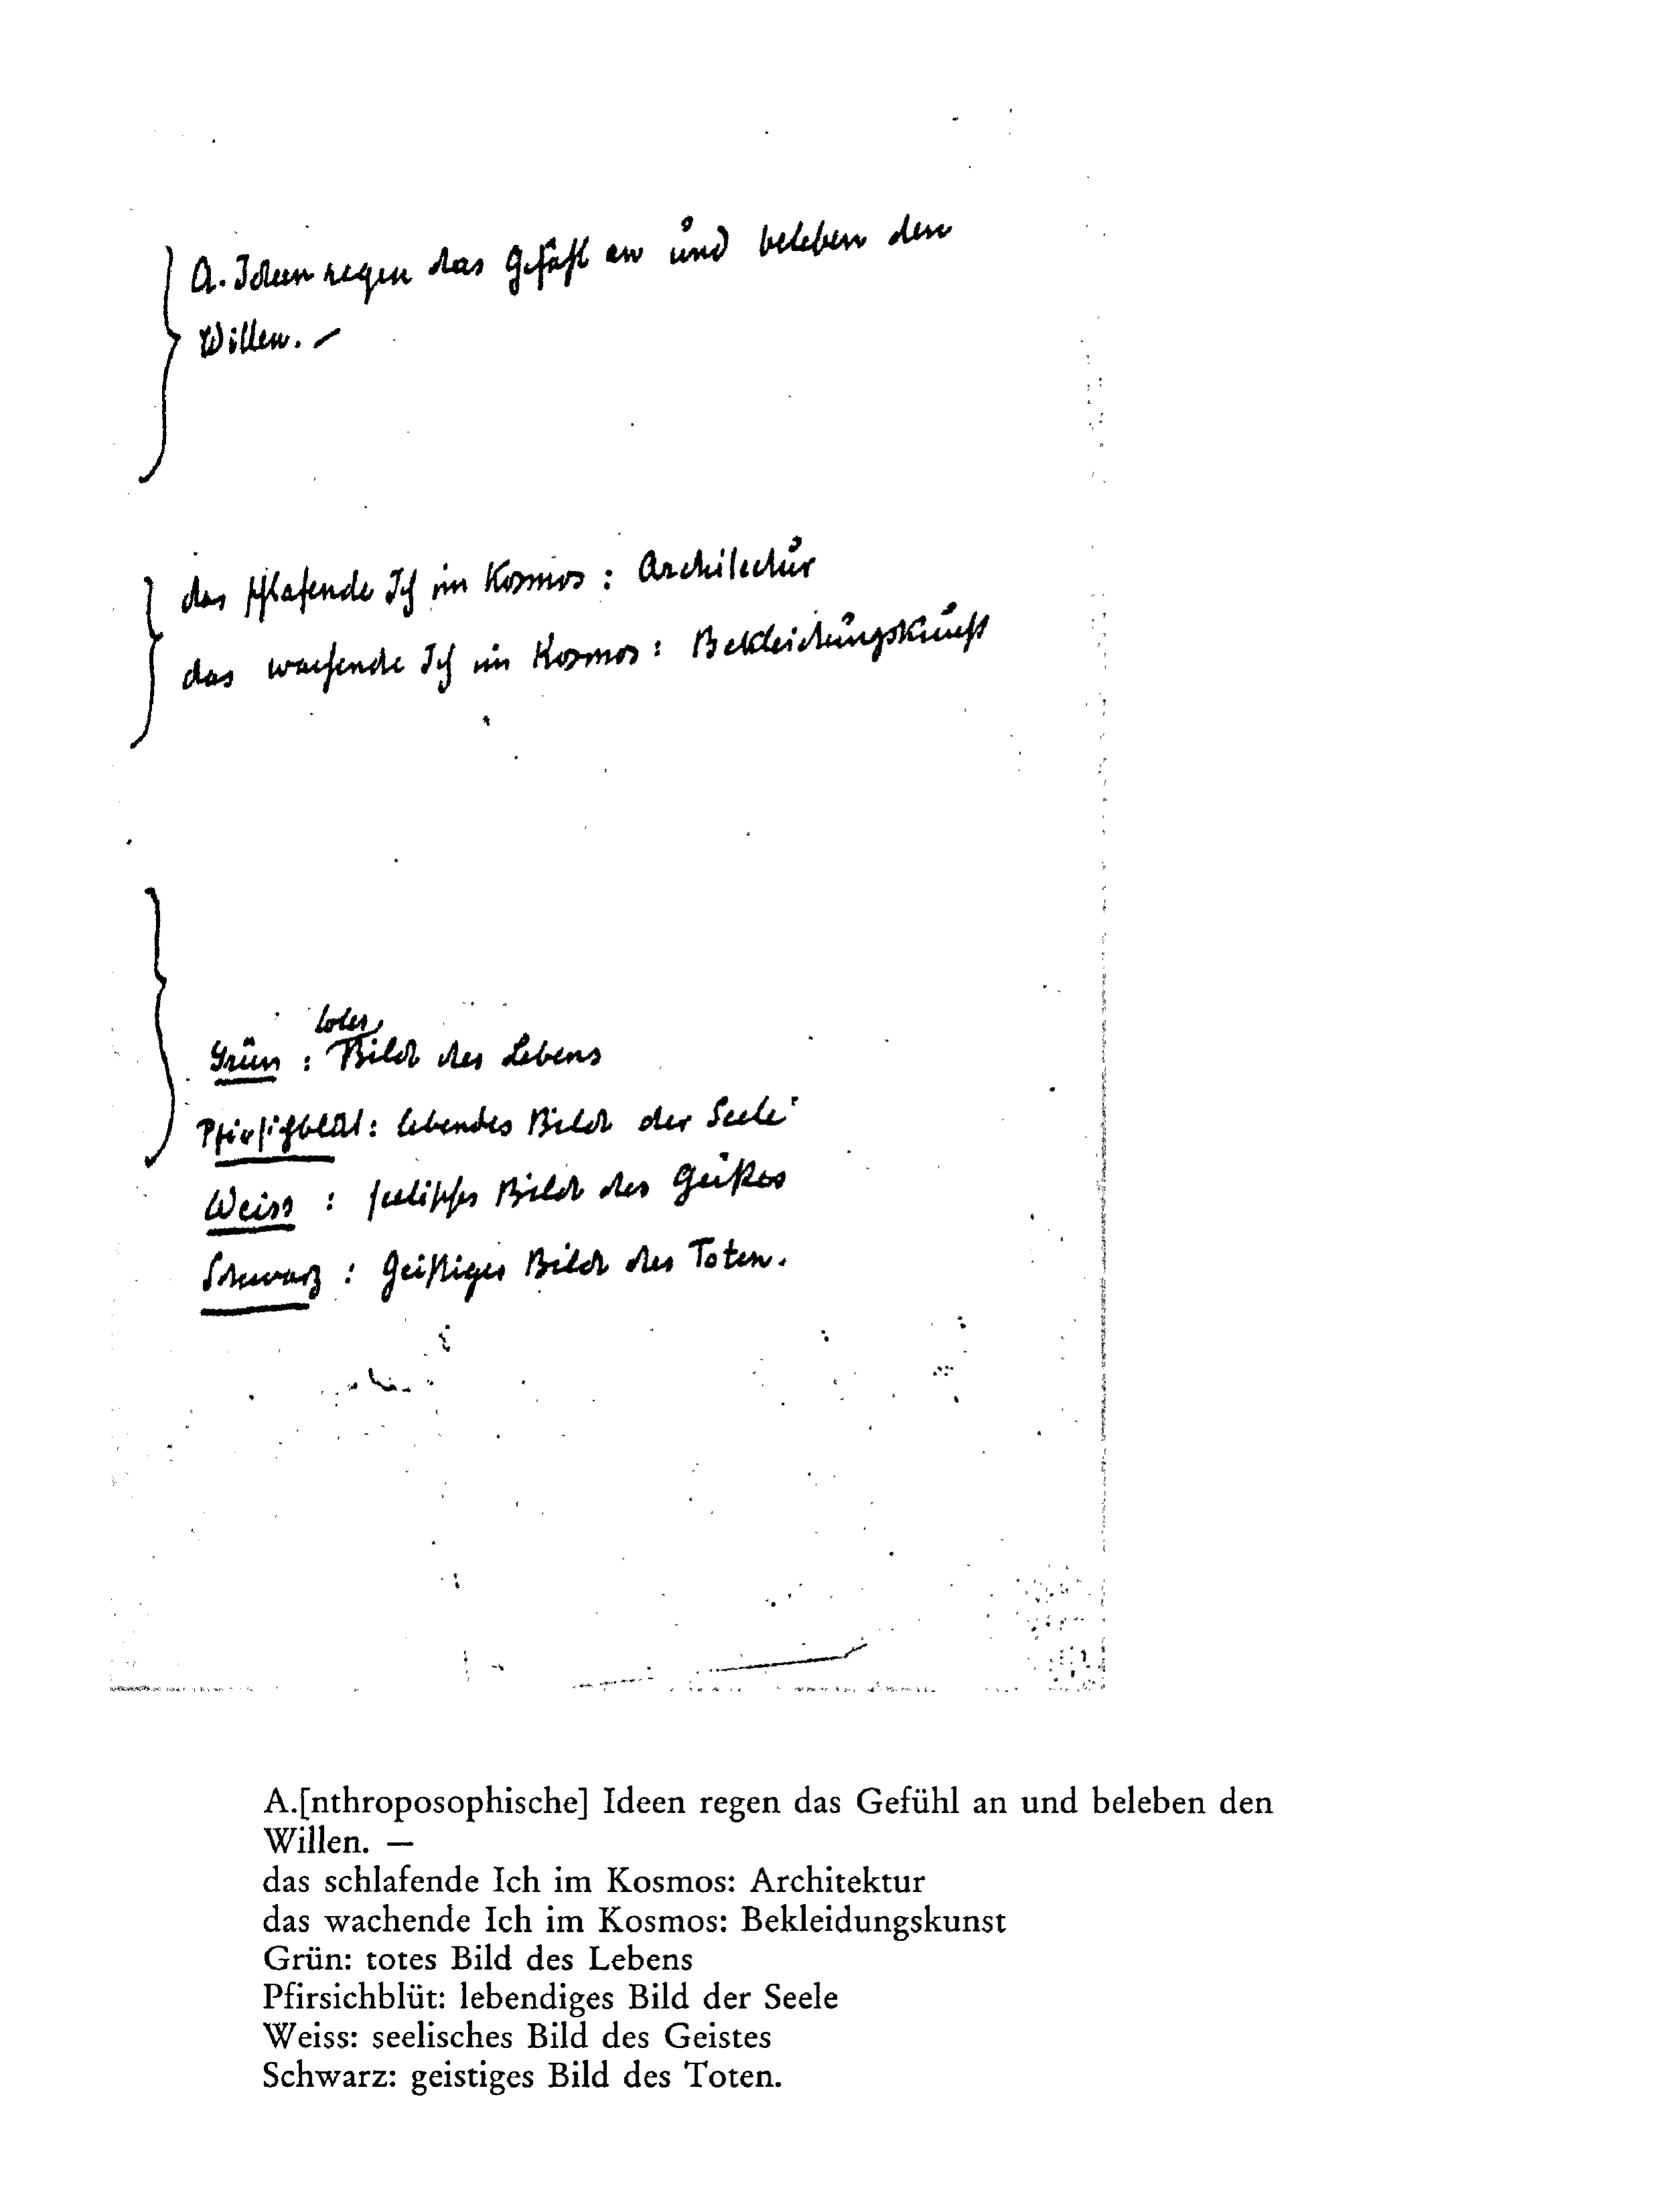 A. Ideen regen das Gefühl an und beleben den
Willen. –
das schlafende Ich im Kosmos: Architectur
das wachende Ich im Kosmos: Bekleidungskunst
totes
Grün: Bild des Lebens
Pfirsichblüt: lebendes Bild der Seele
Weiss: seelisches Bild des Geistes
Schwarz: geistiges Bild des Toten.
A.[nthroposophische] Ideen regen das Gefühl an und beleben den
Willen. —
das schlafende Ich im Kosmos: Architektur
das wachende Ich im Kosmos: Bekleidungskunst
Grün: totes Bild des Lebens
Pfirsichblüt: lebendiges Bild der Seele
Weiss: seelisches Bild des Geistes
Schwarz: geistiges Bild des Toten.